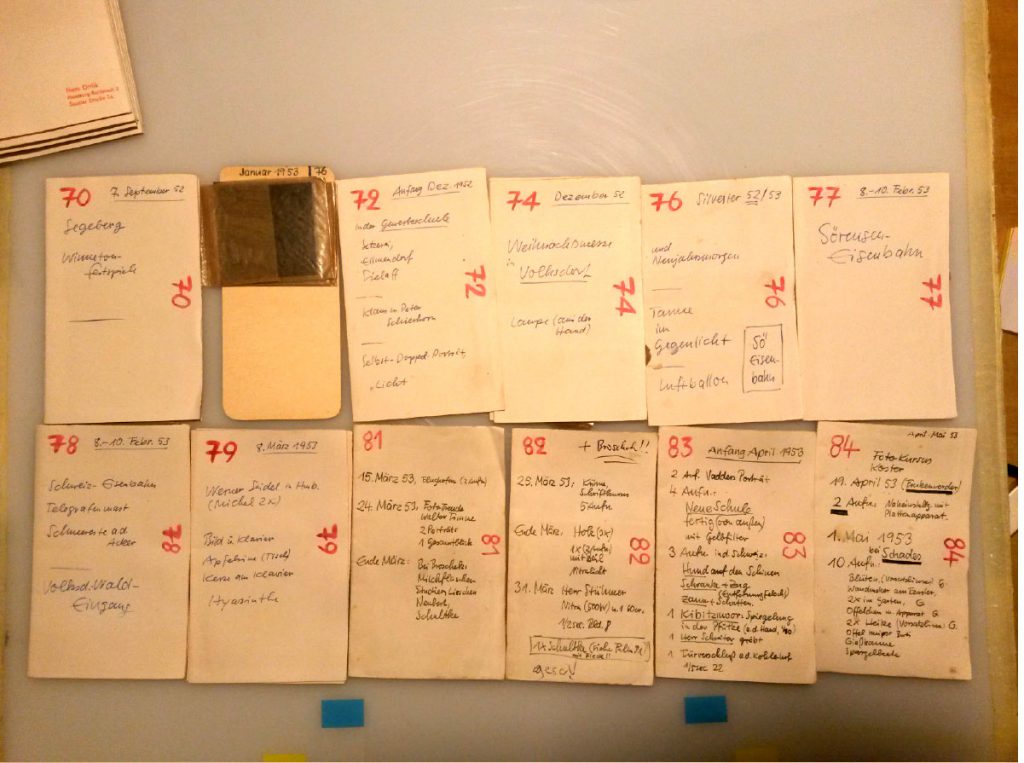 70 7. September 52
Segeberg
Winnetou-
festspiele
70
Januar 1953 76
72 Anfang Dez. 1952
In der Gewerbeschule
Setzerei,
Klaus u. Peter
Schierhorn
Selbst-Doppel-Porträt,
"Licht"
72
74 Dezember 52
Weihnachtsmesse
in
Volksdorf
Lampe (aus der
Hand)
74
76 Silvester 52/53
und
Neujahrsmorgen
Tanne
im
Gegenlicht
Luftballon
Sö
Eisen-
bahn
76
77 8.-10. Febr. 53
Sörensen-
Eisenbahn
77
78 8.-10. Febr. 53
Schweiz-Eisenbahn
Telegrafenmast
Schneereste a d
Acker
Volksd. Wald-
Eingang
78
79 8. März 1953
Werner Seidel in Hmb.
(Michel 2x)
Bild ü. Klavier
Apfelsine (Tisch)
Kerze am Klavier
Hyazinthe
79
81
15. März 53,
24. März 53, Fotofreunde
Walter Timme
2 Porträts
1 Gesamtblick
Ende März: Bei Broscheks:
Milchflaschen
Schultke
81
82 + Broschek!!
25. März 53:
5 Aufn
Ende März: Holz (3x)
31. März Herr Stührmer
Nitra (500W) u. 1 60W.
1/2 sec. Bld. 8
1x Schultke (siehe Film
82
83 Anfang April 1953
2 Auf. Vadders Porträt
4 Aufn:
Neue Schule
fertig (von außen)
mit Gelbfilter
3 Aufn. in d. Schweiz:
Hund auf den Schienen
Schranke + Zug
Zaun + Schatten.
1 Kibitzmoor-Spiegelung
in der Pfütze (a. d. Hand, 1/40)
1 Herr Schröter gräbt
1 Türverschluß a. d. Kohlenh.
1/5 sec 22
83
84 April-Mai 53
Foto-Kursus
Köster
19. April 53
2 Aufn: Naheinstellg. mit
Plattenapparat.
1. Mai 1953
bei Schades
10 Aufn:
Blüten, (Vorsatzlinse) G.
Wandmuster am Fenster,
2x im Garten, G
Offelchen m. Apparat G.
2x Heike (Vorsatzlinse) G.
Gießkanne
Spargelbeete
84